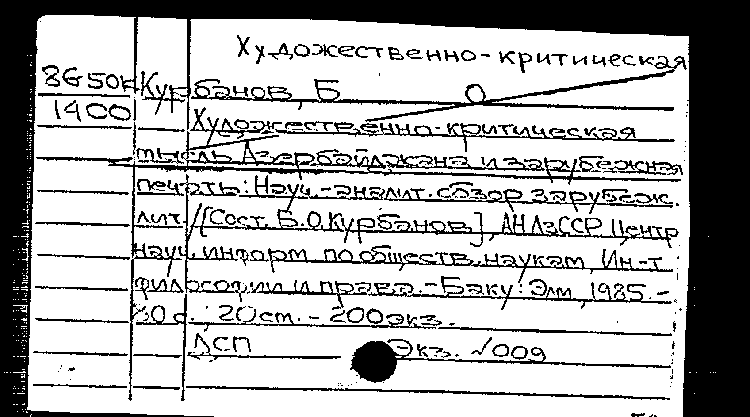 Художественно-критическая
8G50K Курбанов, Б О
1400 Художественно-критическая
мысль Азербайджана и зарубежная
печать: Науч.-аналит. обзор зарубеж.
лит. /[Сост. Б.О.Курбанов], АН АзССР. Центр
науч. информ. по обществ. наукам, Ин-т
философии и права. - Баку: Элм, 1985. -
30 с., 20 cm. - 200 экз.
ДСП Экз. √009